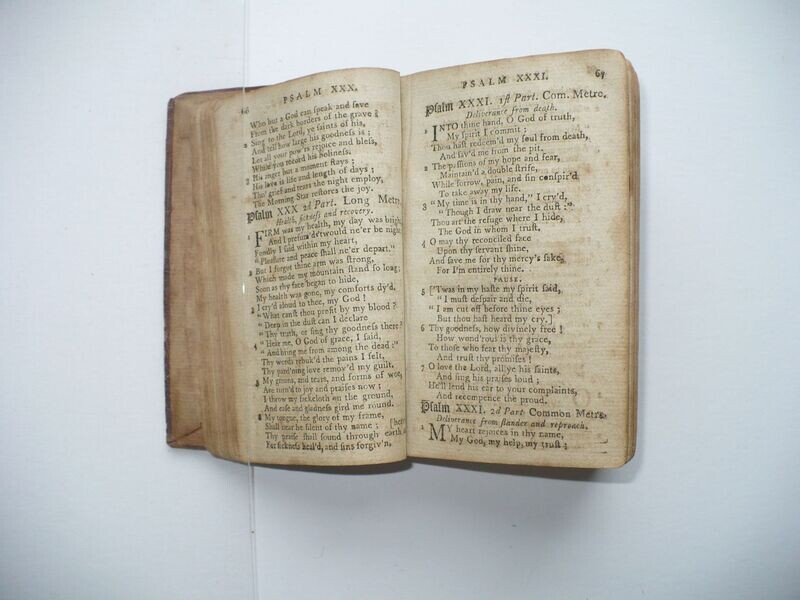 66
PSALM XXX.
Who but a God can speak and save
From the dark borders of the grave?
2 Sing to the Lord, ye saints of his,
And tell how large his goodness is;
Let all your pow'rs rejoice and bless,
While you record his holiness.
3 His anger but a moment stays;
His love is life and length of days;
Tho' grief and tears the night employ,
The Morning Star restores the joy.
Psalm XXX 2d Part. Long Metre
Health, sickness and recovery.
1 FIRM was my health, my day was bright
And I presum'd 'twould ne'er be night
Fondly I said within my heart,
"Pleasure and peace shall ne'er depart."
2 But I forgot thine arm was strong,
Which made my mountain stand so long;
Soon as thy face began to hide,
My health was gone, my comforts dy'd.
3 I cry'd aloud to thee, my God!
"What canst thou profit by my blood?
"Deep in the dust can I declare
"Thy truth, or sing thy goodness there?
4 "Hear me, O God of grace, I said,
"And bring me from among the dead;"
Thy words rebuk'd the pains I felt,
Thy pard'ning love remov'd my guilt.
5 My groans, and tears, and forms of woe,
Are turn'd to joy and praises now;
I throw my sackcloth on the ground,
And ease and gladness gird me round.
6 My tongue, the glory of my frame,
Shall ne'er be silent of thy name; [hea
Thy praise shall sound through earth a
For sickness heal'd, and sins forgiv'n.
PSALM XXXI.
67
Psalm XXXI. 1st Part. Com. Metre.
Deliverance from death.
1 INTO thine hand, O God of truth,
My spirit I commit;
Thou hast redeem'd my soul from death,
And sav'd me from the pit.
2 The passions of my hope and fear,
Maintain'd a double strife,
While sorrow, pain, and sin conspir'd
To take away my life.
3 "My time is in thy hand," I cry'd,
"Though I draw near the dust:"
Thou art the refuge where I hide,
The God in whom I trust.
4 O may thy reconciled face
Upon thy servant shine,
And save me for thy mercy's sake,
For I'm entirely thine.
PAUSE.
5 ['Twas in my haste my spirit said,
"I must despair and die,
"I am cut off before thine eyes;
But thou hast heard my cry.]
6 Thy goodness, how divinely free!
How wond'rous is thy grace,
To those who fear thy majesty,
And trust thy promises!
7 O love the Lord, all ye his saints,
And sing his praises loud;
He'll lend his ear to your complaints,
And recompence the proud.
Psalm XXXI. 2d Part Common Metre.
Deliverance from slander and reproach.
1 MY heart rejoices in thy name,
My God, my help, my trust;